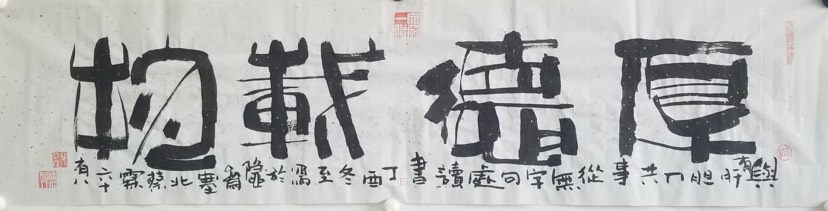 厚德載物
與有肝胆人共事從無字句處讀書丁酉冬至寫於隱齋塞北蔡霖六十有八